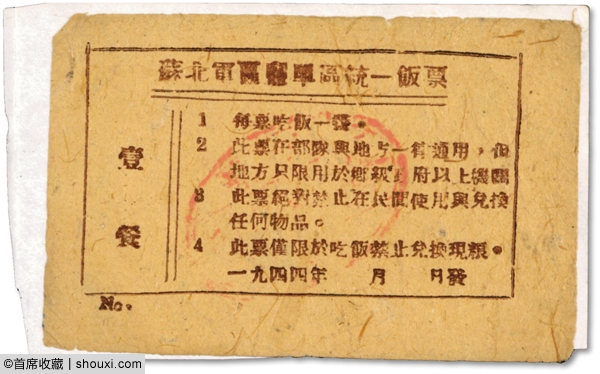 蘇北軍區統一飯票
壹餐
1 每票吃飯一餐。
2 此票在部隊與地方一律通用，但
地方只限用於鄉級政府以上機關
3 此票絕對禁止在民間使用與兌換
任何物品。
4 此票僅限於吃飯禁止兌換現糧。
一九四四年 月 日發
No.
@首席收藏 | shouxi.com